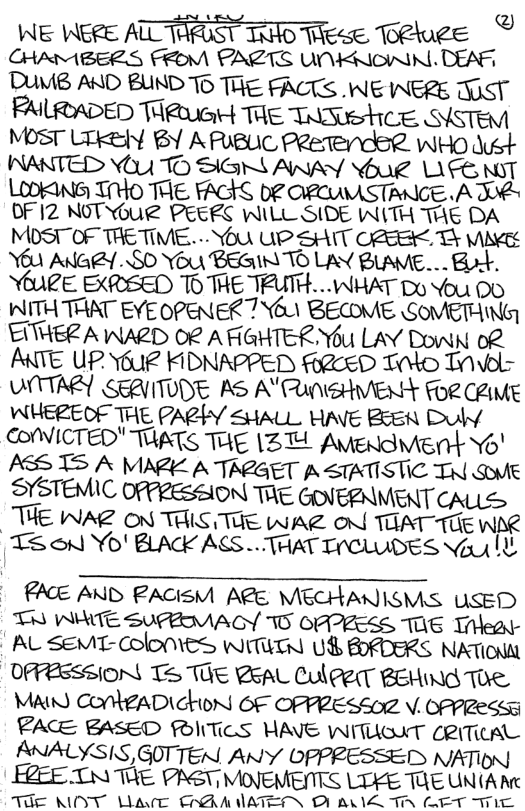 INTRO (2)
WE WERE ALL THRUST INTO THESE TORTURE
CHAMBERS FROM PARTS UNKNOWN. DEAF,
DUMB AND BLIND TO THE FACTS. WE WERE JUST
RAILROADED THROUGH THE INJUSTICE SYSTEM
MOST LIKELY BY A PUBLIC PRETENDER WHO JUST
WANTED YOU TO SIGN AWAY YOUR LIFE NOT
LOOKING INTO THE FACTS OR CIRCUMSTANCE. A JUR
OF 12 NOT YOUR PEERS WILL SIDE WITH THE DA
MOST OF THE TIME... YOU UP SHIT CREEK. IT MAKES
YOU ANGRY. SO YOU BEGIN TO LAY BLAME... BUT.
YOURE EXPOSED TO THE TRUTH... WHAT DO YOU DO
WITH THAT EYE OPENER? YOU BECOME SOMETHING
EITHER A WARD OR A FIGHTER, YOU LAY DOWN OR
ANTE UP. YOUR KIDNAPPED FORCED INTO INVOL-
UNTARY SERVITUDE AS A "PUNISHMENT FOR CRIME
WHEREOF THE PARTY SHALL HAVE BEEN DULY
CONVICTED" THATS THE 13TH AMENDMENT YO'
ASS IS A MARK A TARGET A STATISTIC IN SOME
SYSTEMIC OPPRESSION THE GOVERNMENT CALLS
THE WAR ON THIS, THE WAR ON THAT THE WAR
IS ON YO' BLACK ASS... THAT INCLUDES YOU!!
RACE AND RACISM ARE MECHANISMS USED
IN WHITE SUPREMACY TO OPPRESS THE INTERN-
AL SEMI-COLONIES WITHIN U$ BORDERS NATIONAL
OPPRESSION IS THE REAL CULPRIT BEHIND THE
MAIN CONTRADICTION OF OPPRESSOR V. OPPRESSE
RACE BASED POLITICS HAVE WITHOUT CRITICAL
ANALYSIS, GOTTEN ANY OPPRESSED NATION
FREE. IN THE PAST, MOVEMENTS LIKE THE UNIA
THE NOI, HAVE FORMULATED PLANS TO GET THE